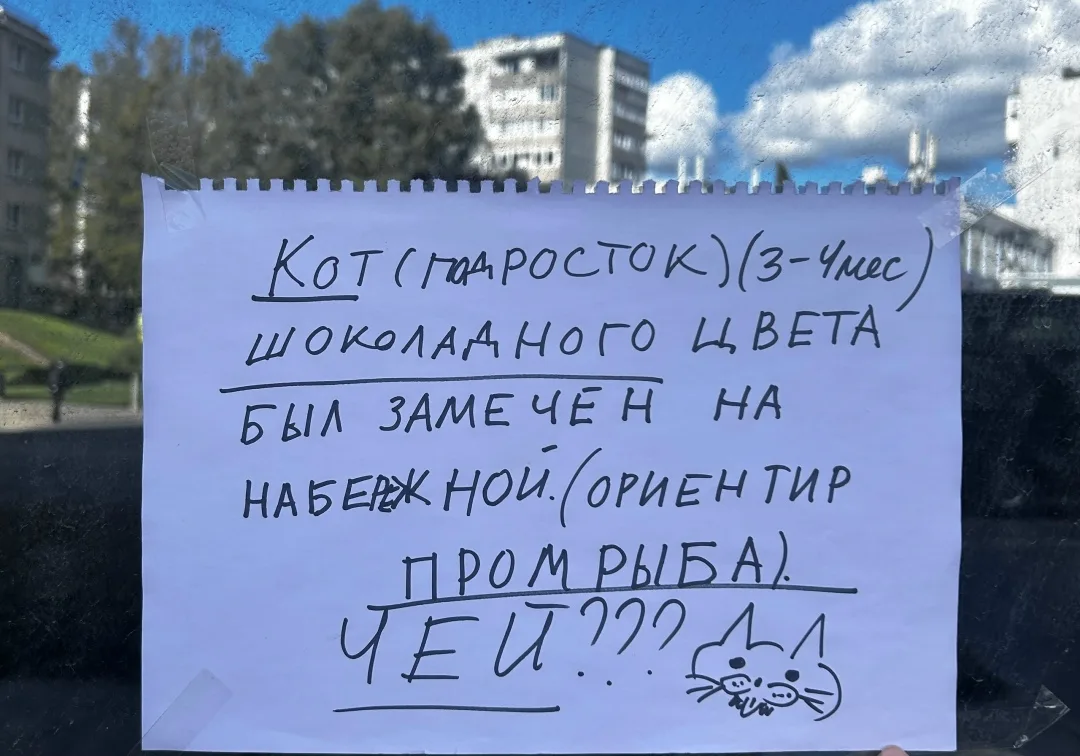 Кот (ПОДРОСТОК) (3-4 мес)
ШОКОЛАДНОГО ЦВЕТА
БЫЛ ЗАМЕЧЕН НА
НАБЕРЕЖНОЙ. (ОРИЕНТИР
ПРОМРЫБА).
ЧЕЙ???